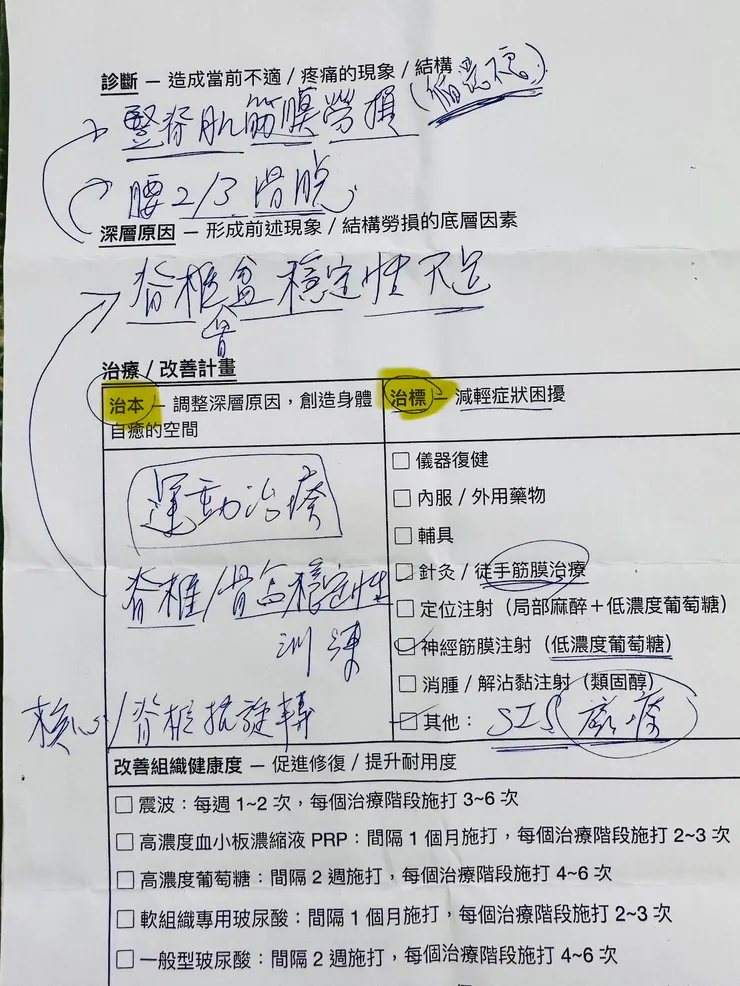 診斷 — 造成當前不適 / 疼痛的現象 / 結構
豎脊肌筋膜勞損
腰 2/3 滑脫
深層原因 — 形成前述現象 / 結構勞損的底層因素
脊椎盆穩定性不足
骨
治療 / 改善計畫
治本 — 調整深層原因，創造身體
自癒的空間
運動治療
脊椎/骨盆穩定性
訓練
核心/脊椎抗旋轉
治標 — 減輕症狀困擾
儀器復健
內服 / 外用藥物
輔具
針灸 / 徒手筋膜治療
定位注射（局部麻醉＋低濃度葡萄糖）
神經筋膜注射（低濃度葡萄糖）
消腫 / 解沾黏注射（類固醇）
其他： SIS 療
改善組織健康度 — 促進修復 / 提升耐用度
震波：每週 1~2 次，每個治療階段施打 3~6 次
高濃度血小板濃縮液 PRP：間隔 1 個月施打，每個治療階段施打 2~3 次
高濃度葡萄糖：間隔 2 週施打，每個治療階段施打 4~6 次
軟組織專用玻尿酸：間隔 1 個月施打，每個治療階段施打 2~3 次
一般型玻尿酸：間隔 2 週施打，每個治療階段施打 4~6 次